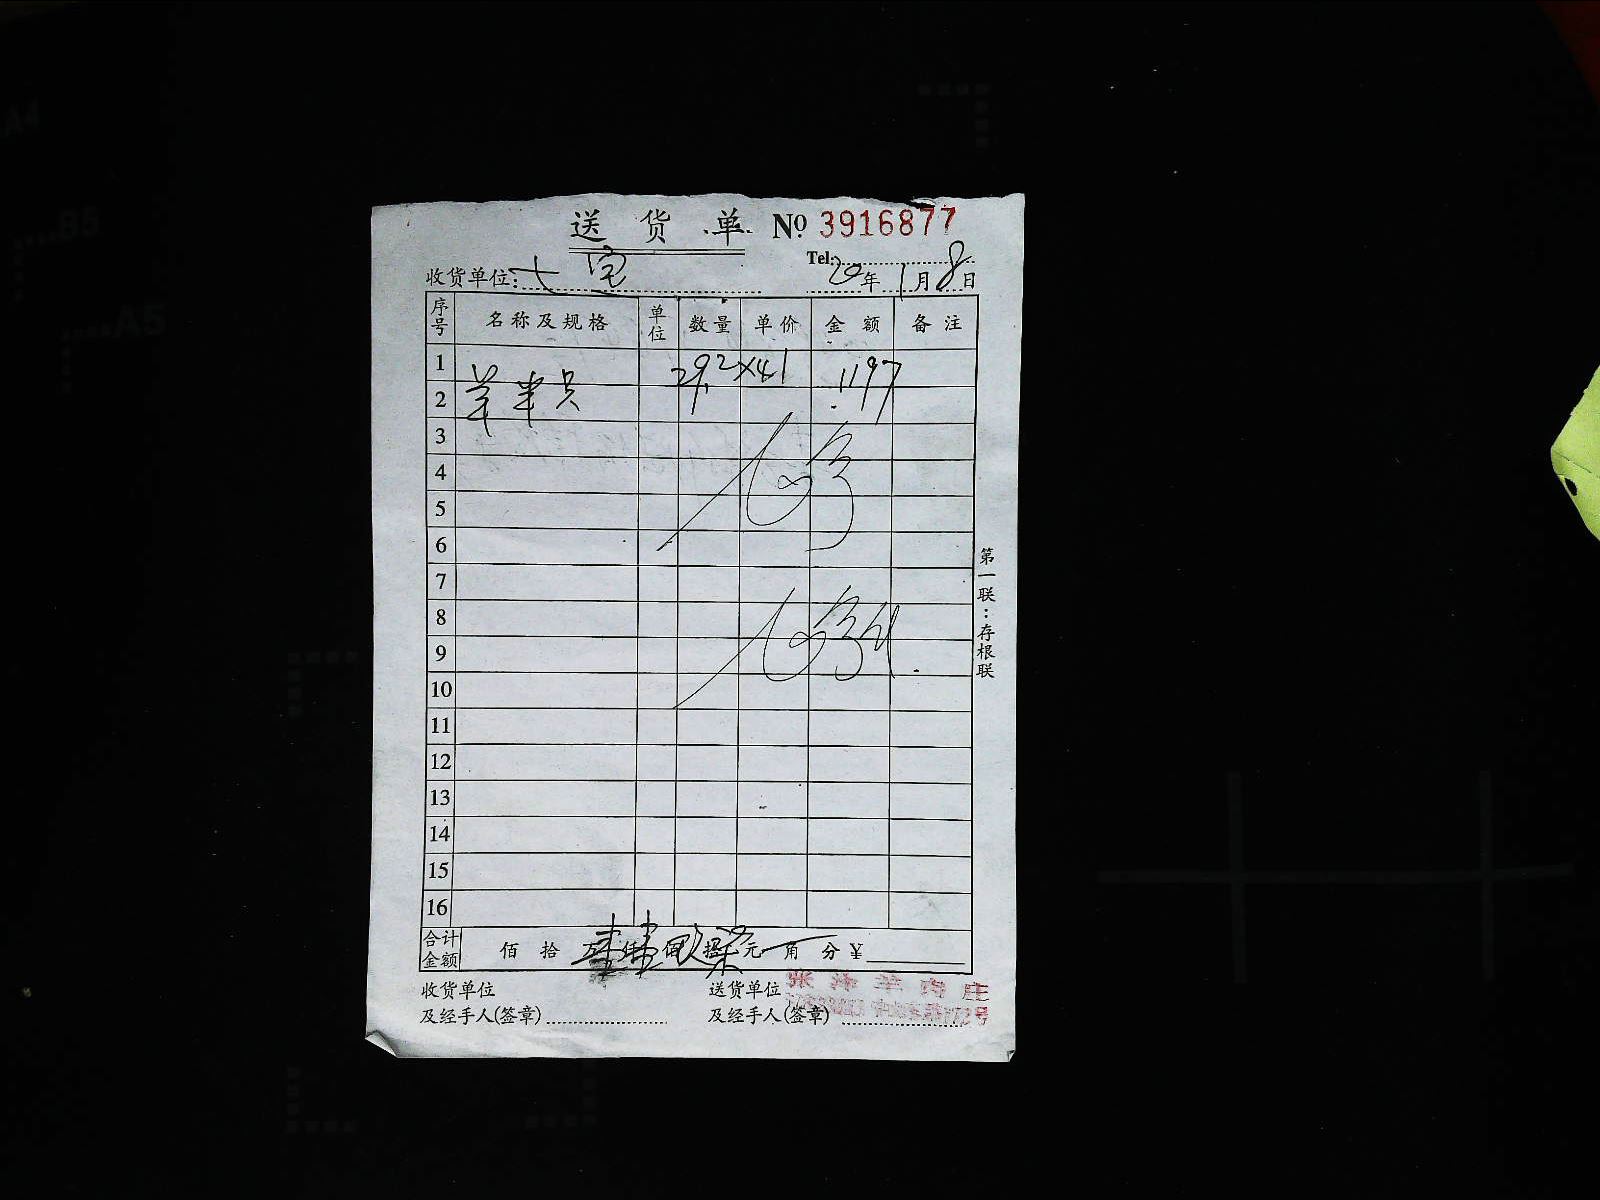 送货单 № 3916877
Tel:
收货单位: 七宅 20年1月8日
序号 名称及规格 单位 数量 单价 金额 备注
1
羊半只 29.2×41 1197
2
3
4
5
6
7
8
9
10
11
12
13
14
15
16
第一联:存根联
合计金额 佰 拾 万 仟 佰 拾 元 角 分 ¥
收货单位 送货单位
及经手人(签章) 及经手人(签章)
A4
B5
A5